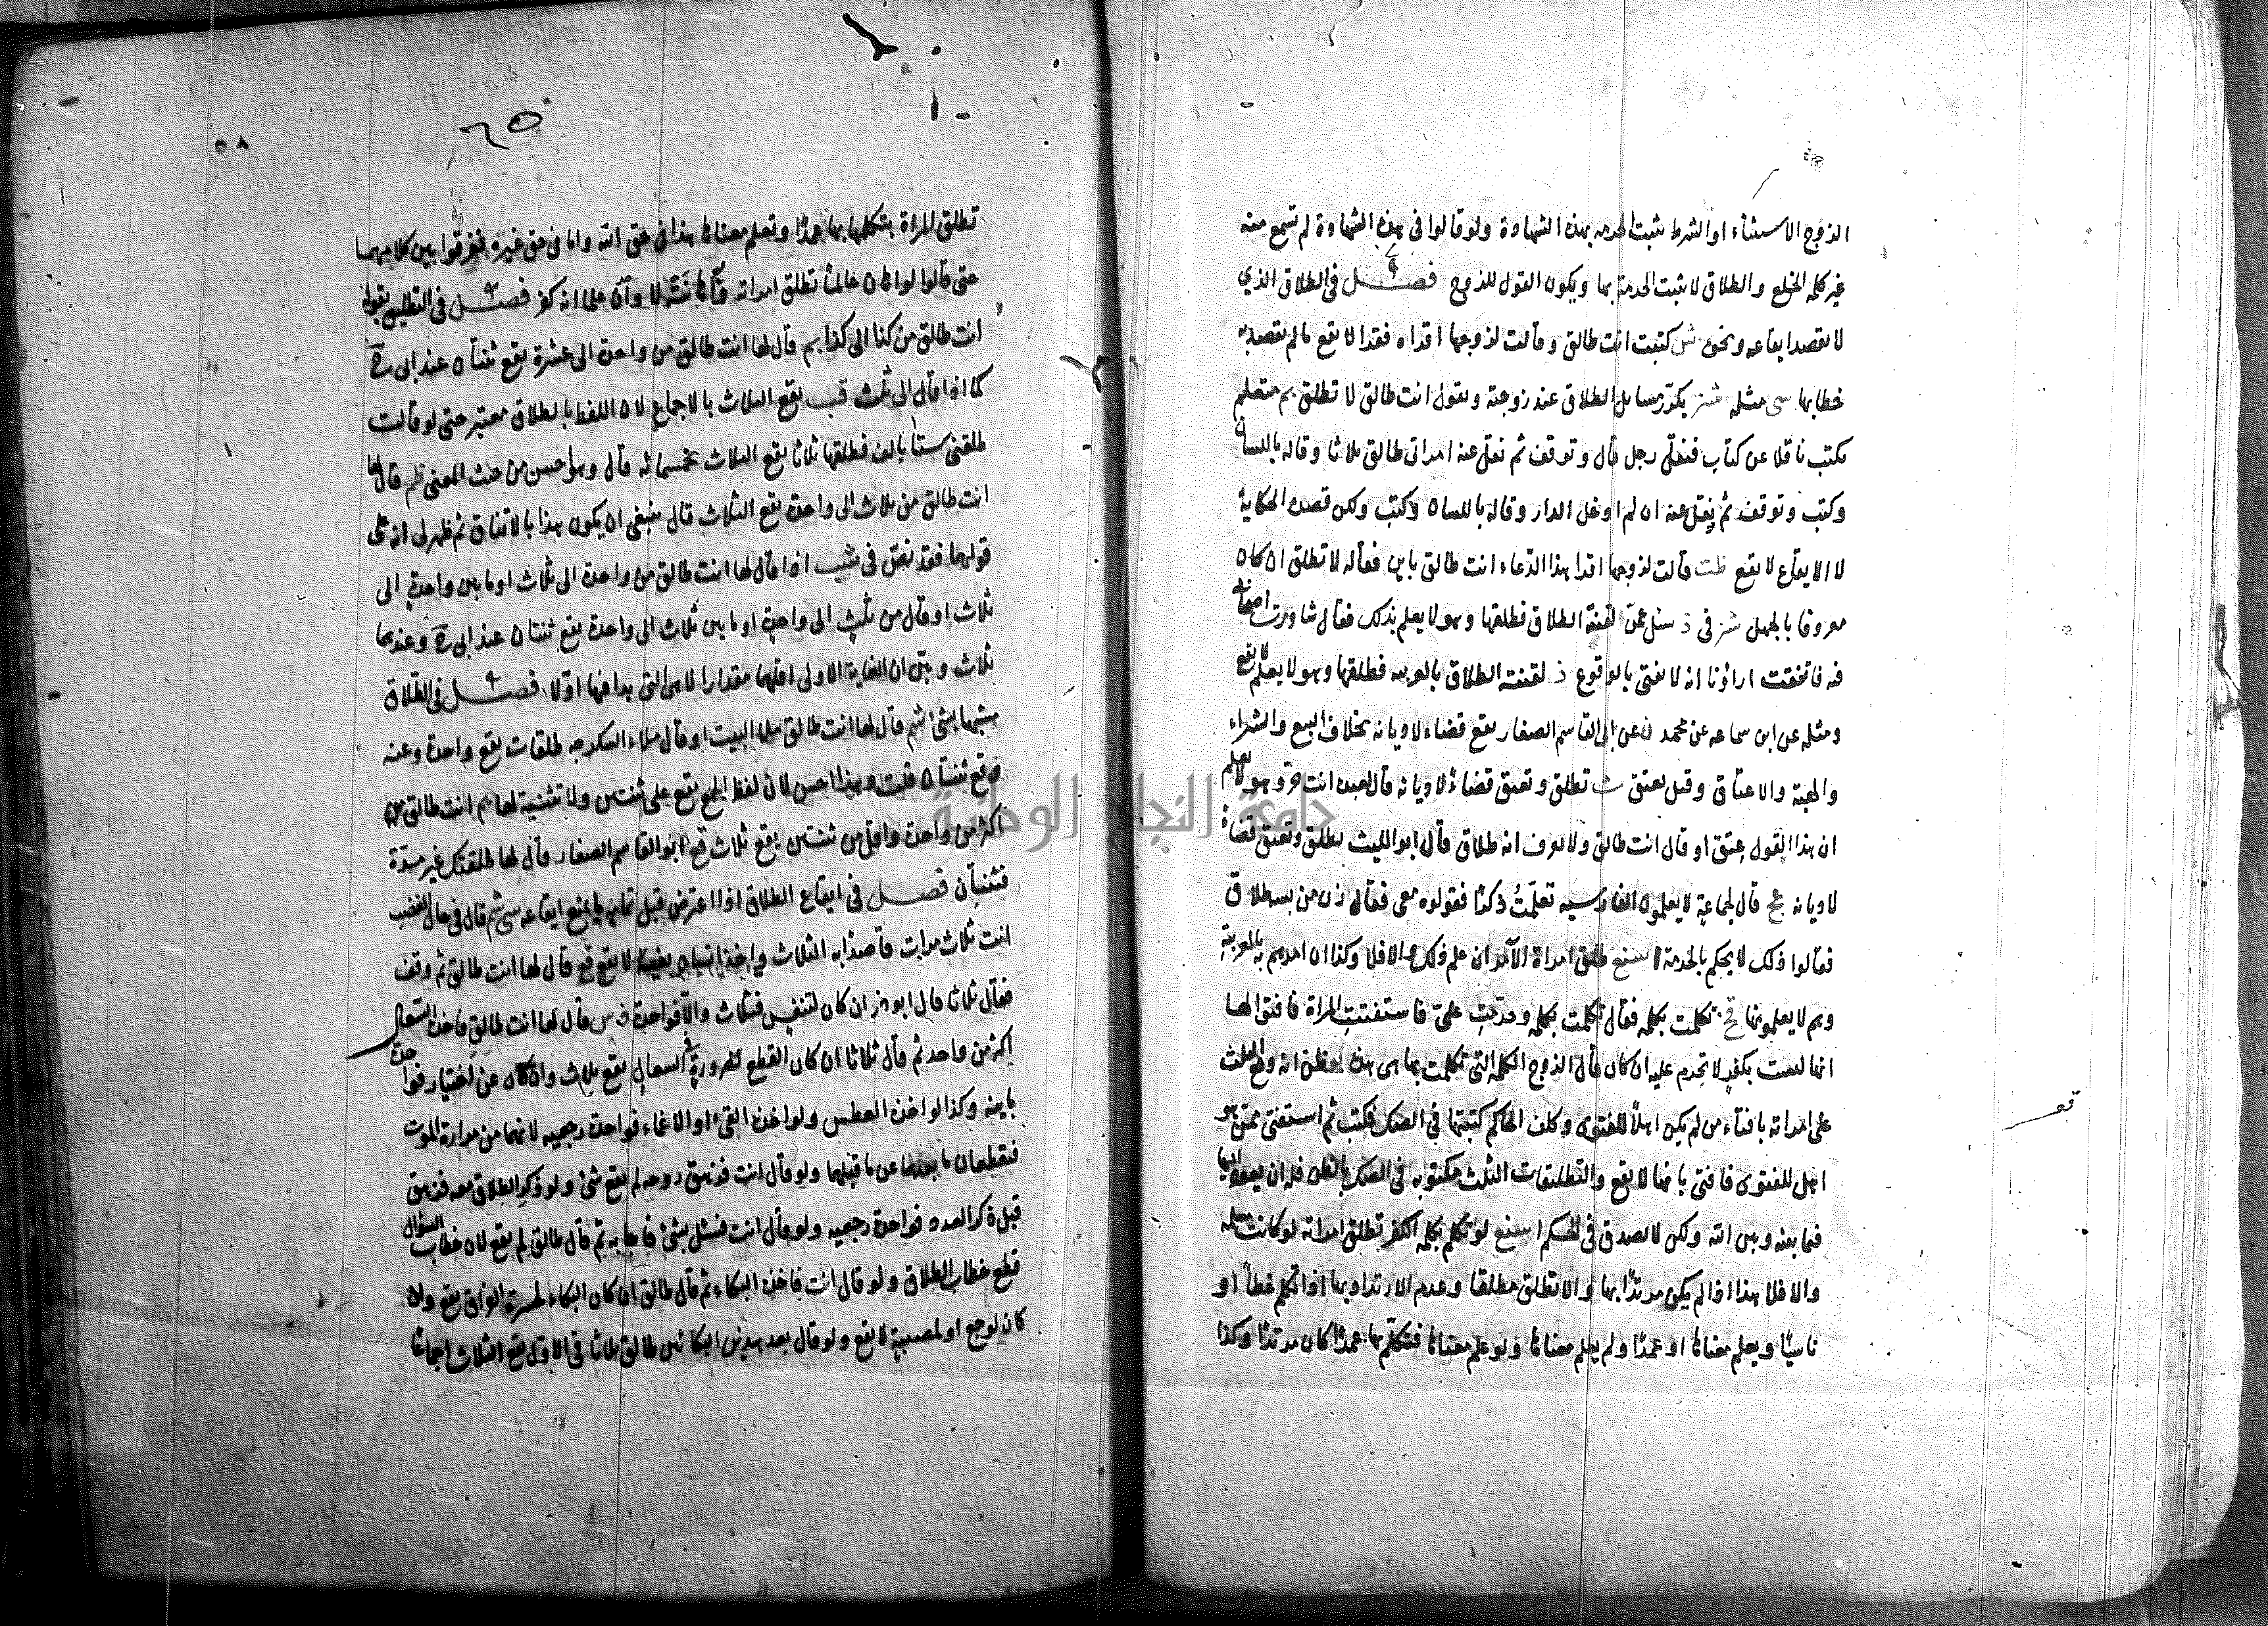 الزوج الاستثناء او الشرط تثبت الحرمه بهذه الشهادة ولو قالوا في هذه الشهادة لم تسمع منه
غير كلمة الخلع والطلاق لا تثبت الحرمة بها ويكون القول للزوج فصل في الطلاق الذي
لا يقصد ايقاعه ونحوه كتبت انت طالق وقالت لزوجها اقراه فقرا لا يقع ما لم يقصد به
خطابها مثله يكرر مسايل الطلاق عند زوجته ويقول انت طالق لا تطلق متعلم
يكتب ناقلا عن كتاب رجل قال وتوقف ثم نقل عنه امراتي طالق ثلاثا وقاله باللسان
وكتب وتوقف ثم ينقل عنه ان لم ادخل الدار وقاله باللسان وكتب ولكن قصده الحكاية
لا الايقاع لا يقع قالت لزوجها اقرا هذا الدعاء انت طالق باين فقاله لا تطلق ان كان
معروفا بالجهل سئل عمن لقنته الطلاق فطلقها وهو لا يعلم بذلك فقال شاورت اصحابي
فيه فاتفقت اراؤنا انه لا يفتى بالوقوع لقنته الطلاق بالعربيه فطلقها وهو لا يعلم لا يقع
ومثله عن ابن سماعه عن محمد عن ابي القاسم الصفار يقع قضاء لا ديانه بخلاف البيع والشراء
والهبة والاعتاق وقيل يعتق تطلق وتعتق قضاء لا ديانه قال لعبده انت حر وهو لا يعلم
ان هذا القول عتق او قال انت طالق ولا يعرف انه طلاق قال ابو الليث تطلق وتعتق قضاء
لا ديانه قال لجماعة لا يعلمون الفارسيه تعلمت ذكرا فقولوه معي فقال
فقالوا ذلك لا يحكم بالحرمة طلق امراة الآمر ان علم ذلك والا فلا وكذا ان امرهم به بالعربية
وهم لا يعلمونها تكلمت بكلمه فقال تكلمت بكلمه وحرمت علي فاستفتت المراة فافتوا لها
انها ليست بكفر لا تحرم عليه ان كان قال الزوج الكلمه التي تكلمت بها هي هذه وظن انه وقع الثلث
على امراته بافتاء من لم يكن اهلا للفتوى وكلف الحاكم كتبها في الصك فكتب ثم استفتى ممن هو
اهل للفتوى فافتى بانها لا يقع والتطليقات الثلث مكتوبه في الصك بالظن فله ان يعود اليها
فيما بينه وبين الله ولكن لا يصدق في الحكم لو تكلم بكلمه الكفر تطلق امراته لو كانت مسلمه
والا فلا هذا اذا لم يكن مرتدا بها والا تطلق مطلقا وعدم الارتداد بها اذا تكلم خطأ او
ناسيا ويعلم معناها او عمدا ولم يعلم معناها ولو علم معناها فتكلم بها عمدا كان مرتدا وكذا
قف
٥٨
تطلق المراة بتكلمها بها عمدا وتعلم معناها هذا في حق الله واما في حق غيره ففرقوا بين كلامهما
حتى قالوا لو كان عالما تطلق امراته لا وان علما انه كفر فصل في التطليق بقوله
انت طالق من كذا الى كذا قال لها انت طالق من واحدة الى عشرة يقع ثنتان عند ابي ح
كما اذا قال الى ثلث يقع الثلاث بالاجماع لان اللفظ بالطلاق معتبر حتى لو قالت
طلقني ستا بالف فطلقها ثلاثا يقع الثلاث بخمسمائه قال وهو احسن من حيث المعنى قال لها
انت طالق من ثلاث الى واحدة يقع الثلاث قال ينبغي ان يكون هذا بالاتفاق ثم ظهر لي انه على
قولهما فقد نص في اذا قال لها انت طالق من واحدة الى ثلاث او ما بين واحدة الى
ثلاث او قال من ثلث الى واحدة او ما بين ثلاث الى واحدة يقع ثنتان عند ابي ح وعندهما
ثلاث وتبين ان الغاية الاولى اقلهما مقدارا لا هي التي بدا فيها اولا فصل في الطلاق
مشبها بشئ قال لها انت طالق ملا البيت او قال ملاء السكرجه طلقات يقع واحدة وعنه
يقع ثنتان قلت وهذا احسن لان لفظ الجمع يقع على ثنتين ولا تثنية لها انت طالق
اكثر من واحدة واقل من ثنتين يقع ثلاث ابو القاسم الصفار قال لها طلقتك غير مرة
فثنتان فصل في ايقاع الطلاق اذا اعترض قبل تمامه ما يمنع ايقاعه قال في حال الغضب
انت ثلاث مرات قاصدا به الثلاث واخذ انسان لا يقع قال لها انت طالق ثم وقف
فقال ثلاثا قال ابو ذر ان كان لتنفس فثلاث والا فواحدة قال لها انت طالق فاخذه السعال
اكثر من واحد ثم قال ثلاثا ان كان القطع لضرورة السعال يقع ثلاث وان كان عن اختيار فواحدة
باينه وكذا لو اخذه العطس ولو اخذه القئ او الاغماء فواحدة رجعيه لانهما من مرارة الموت
فيقطعان ما بعدهما عن ما قبلهما ولو قال انت فزهق روحه لم يقع شئ ولو ذكر الطلاق معه فزهق
قبل ذكر العدد فواحدة رجعيه ولو قال انت فسئل بشئ فاجابه ثم قال طالق لم يقع لان خطاب السؤال
قطع خطاب الطلاق ولو قال انت فاخذه البكاء ثم قال طالق ان كان البكاء لحسرة الفراق يقع وان
كان لوجع او لمصيبة لا يقع ولو قال بعد هذين البكائين طالق ثلاثا في الاول يقع الثلاث اجماعا
جامعة النجاح الوطنية